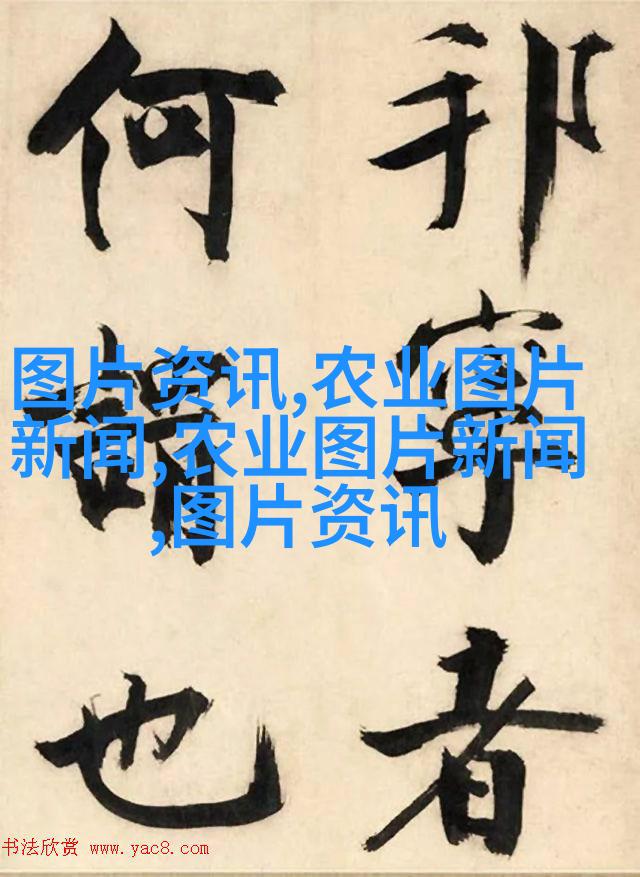 邦 者
何謂也
图片资讯,农业图片
新闻,农业图片新闻
,图片资讯
书法欣赏 www.yac8.com